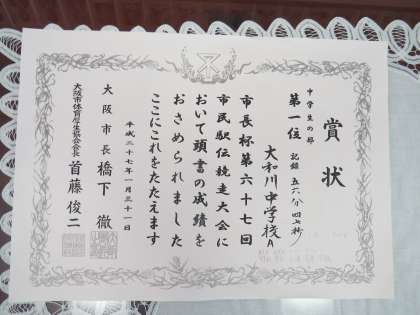 賞状
中学生の部
第一位 記録 五六分四七秒
大和川中学校A
市長杯第六十七回
市民駅伝競走大会に
おいて頭書の成績を
おさめられました
ここにこれをたたえます
平成二十七年一月三十一日
大阪市長 橋下 徹
大阪市体育厚生協会会長 首藤 俊二